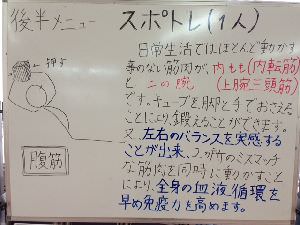 後半メニュー スポトレ(1人)
押す
腹筋
日常生活ではほとんど動かす
事のない筋肉が、内もも(内転筋)
と 二の腕 (上腕三頭筋)
です。チューブを脚と手でおさえる
ことにより、鍛えることができます。
又、左右のバランスを実感する
ことが出来、
な筋肉を同時に動かすこと
により、全身の血液循環を
早め免疫力を高めます。